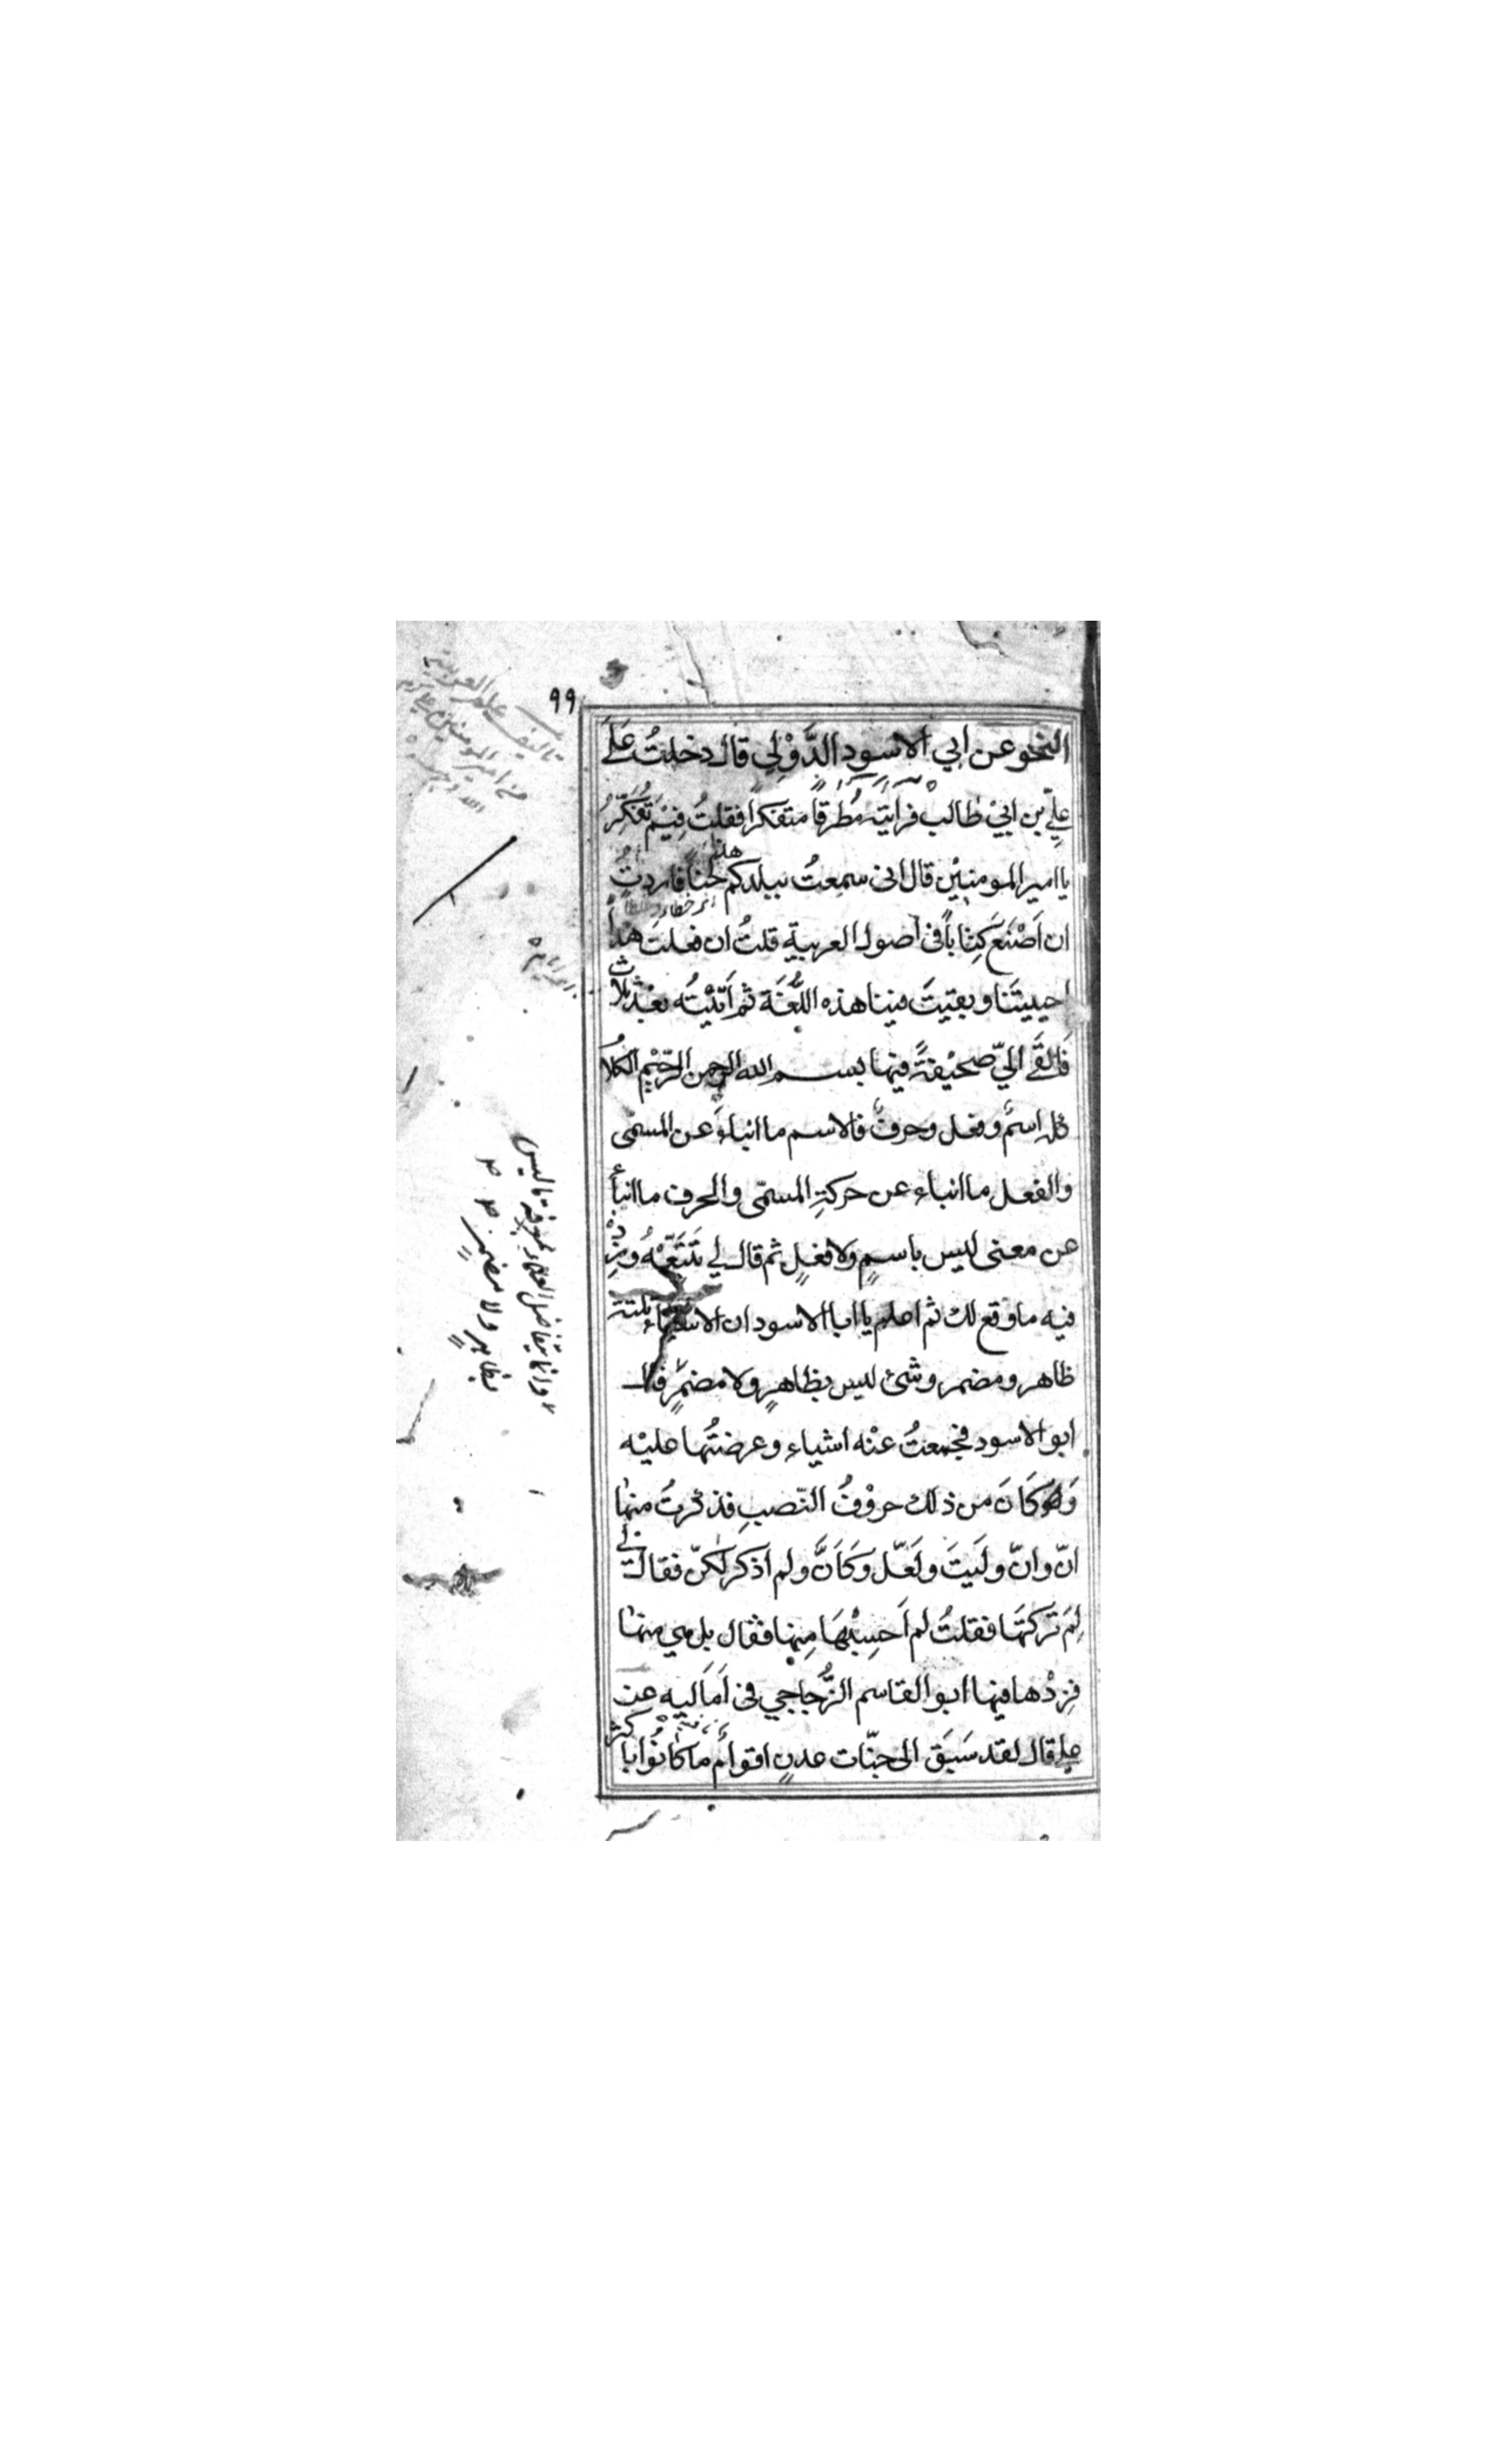 ٩٩
النّحو عن ابي الاسود الدَّوْلِي قال دخلتُ عَلَے
عليّ بن ابيْ طالب فرأيته مُطرقًا متفكرًا فقلتُ فِيْمَ تُفَكِّرُ
يا امير المومنين قال انى سمعتُ ببلدكم هذا لحنًا فاردتُ
ان اَصْنَعَ كِتابًا فى اصول العربيةِ قلتُ ان فعلتَ هذا
احييتَنا وبقيتَ فينا هذه اللُّغَة ثم اَتَيْتُه بعْدَ ثلاث
فَاَلقَے الىّ صحيْفةً فيها بسم الله الرحمن الرّحِيْم الكلا
كله اسمٌ وفعل وحرفٌ فالاسم ما انباء عن المسمّى
والفعل ما انباء عن حركةِ المسمّى والحرف ما انبأ
عن معنى ليس باسمٍ ولا فعلٍ ثم قال لي تَتَبَّعْهُ وزِدْ
فيه ما وقع لك ثم اعلم يا ابا الاسود ان الاسماء ثلثة
ظاهر ومضمر وشئ ليس بظاهرٍ ولا مضمرٍ قال
ابو الاسود فجمعتُ عنْه اشياء وعرضتُها عليْه
وَكَانَ من ذلك حروْفُ النّصبِ فذكرتُ منها
انّ وانّ ولَيتَ ولَعَلّ وَكَاَنَّ ولم اذكر لكنّ فقال لے
لِمَ تركتَها فقلتُ لم اَحسِبْهَا مِنها فقال بل هي منها
فزِدْها فيها ابو القاسم الزُّجاجي فى اَمَاليه عن
علي قال لقد سَبَق الى جنّات عدنٍ اقوامٌ ما كانُوا باكثر
تاليف علم العربية
من امير المومنين علي
وانما يتفاضل العلماء بمعرفة ما ليس
بظاهرٍ ولا مضمرٍ